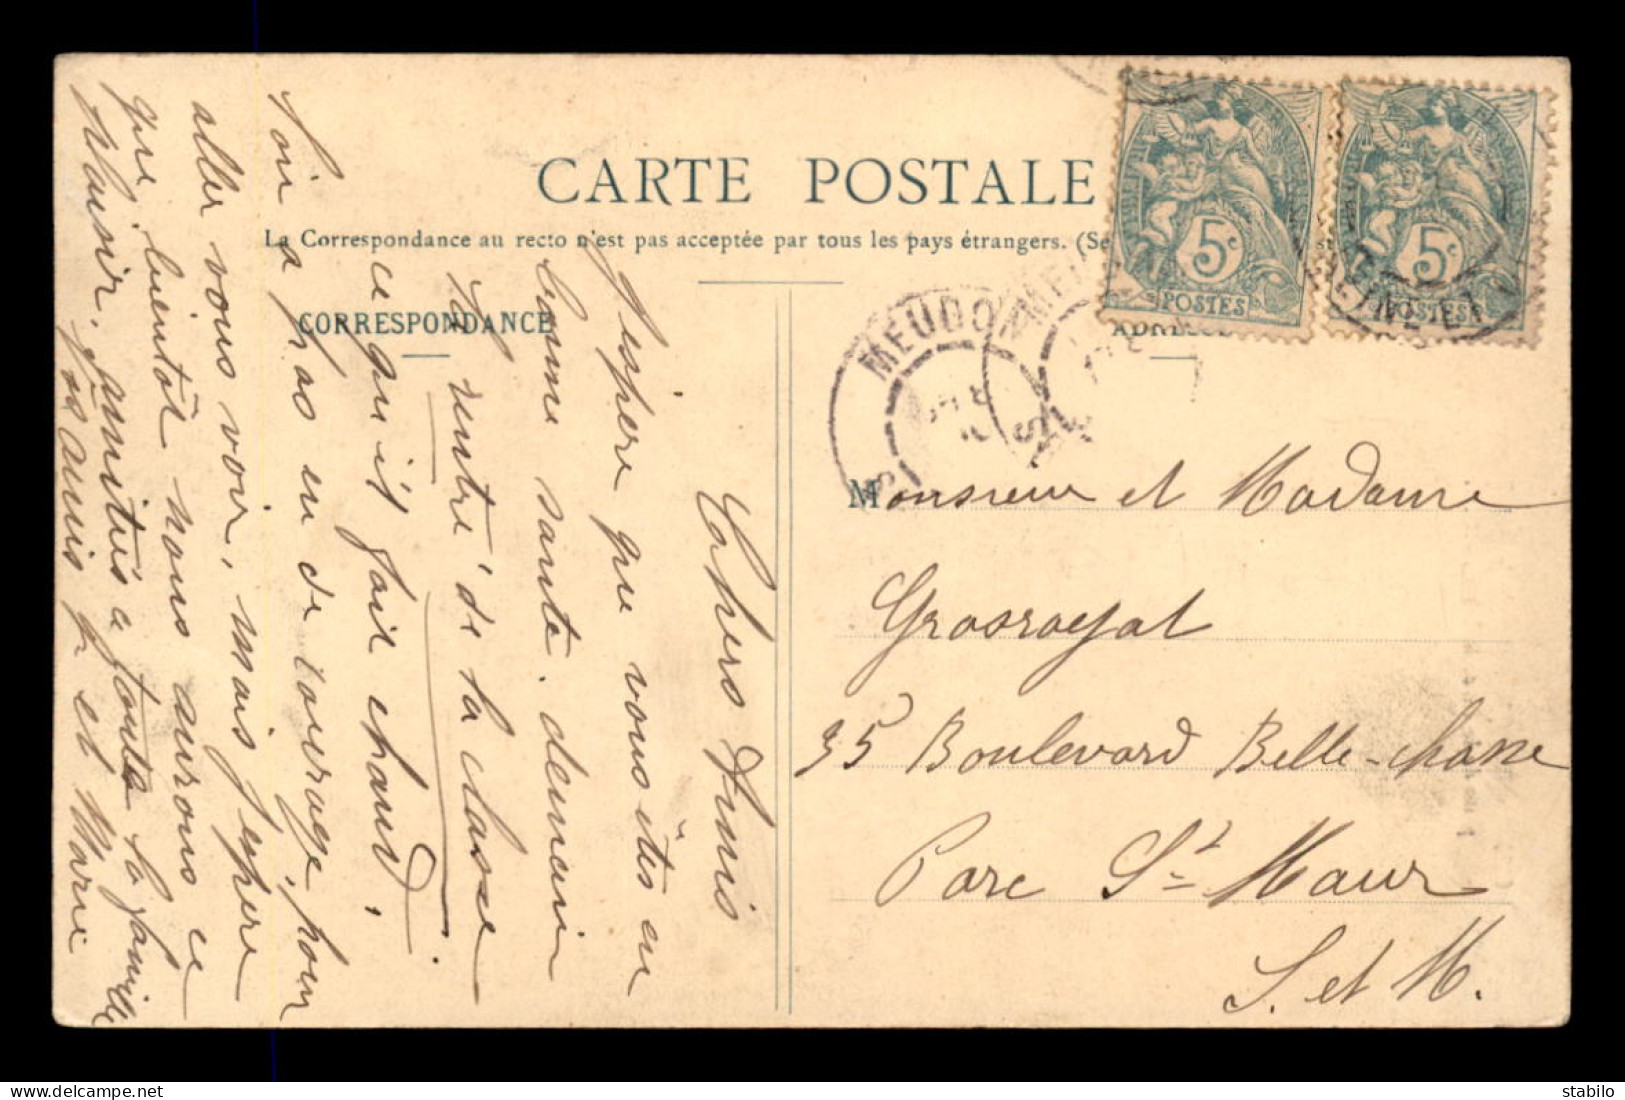 CARTE POSTALE
La Correspondance au recto n'est pas acceptée par tous les pays étrangers. (Se
CORRESPONDANCE
Chers Amis
J'espère que vous êtes en
bonne santé. demain
la rentré de la classe
ce qu'il fait chaud,
l'on a pas en de courage, pour
aller vous voir, mais j'espère
que bientôt nous aurons ce
plaisir. amitiés a toute la famille
vos amis et Marie
5c
POSTES
5c
POSTES
MEUDON
SEINE ET
Monsieur et Madame
Grosroyal
35 Boulevard Belle-chasse
Parc St Maur
S. et M.
stabilo